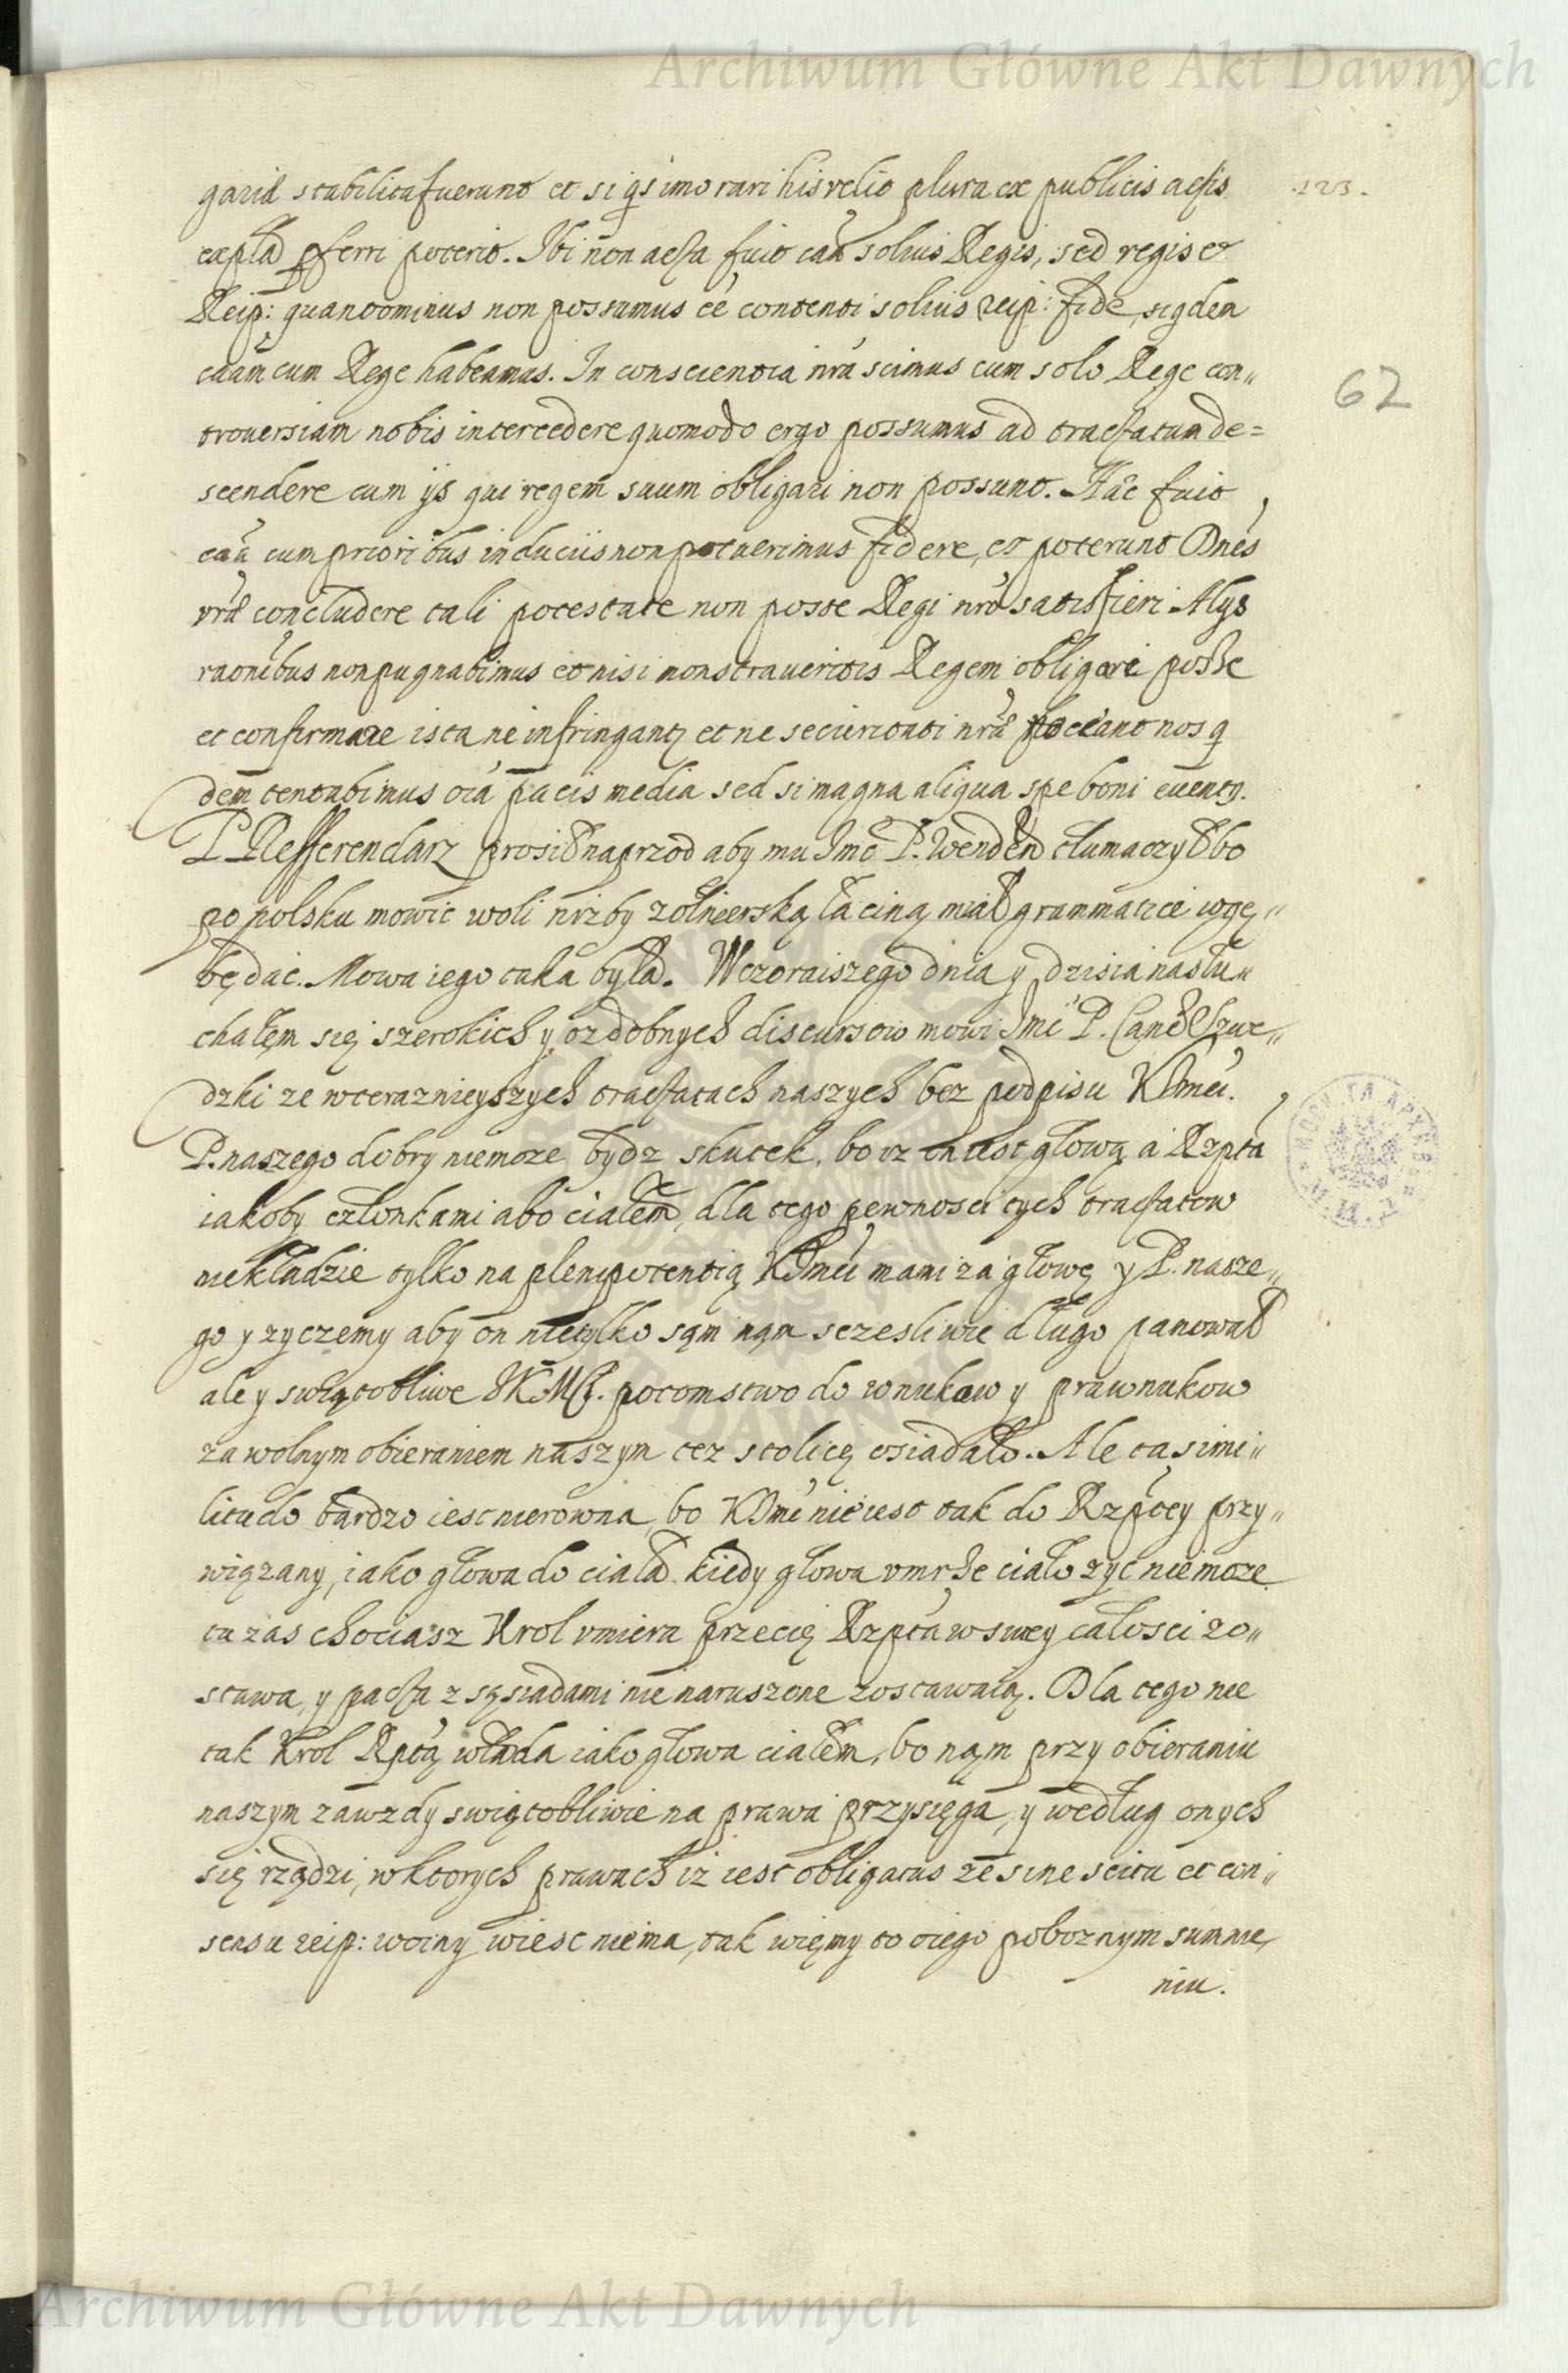 Archiwum Główne Akt Dawnych
garia stabilita fuerunt et si q̃s imorari his velit plura ex publicis actis
123.
expla pferri poterit. Ibi non acta fuit cãa solius Regis, sed regis et
Reip: quantominus non possumus eé contenti solius reip: fide, siqdem
cũam cum Rege habeamus. In conscientia nrã scimus cum solo Rege con„
62
trouersiam nobis intercedere quomodo ergo possumus ad tractatum de=
scendere cum ijs qui regem suum obligari non possunt. Hãc fuit
cãa cum prioribus induciis non potuerimus fidere, et poterunt Dnẽs
vrã concludere tali potestate non posse Regi nrõ satisfieri Alys
raõnibus non pugnabimus et nisi monstraueritis Regem obligari posse
et confirmare ista ne infringantz et ne securitati nrã noceant nos q
dem tentabimus oĩa pacis media sed si magna aliqua spe boni euentq.
P. Refferendarz prosił naprzod aby mu Jmć P. Wenden tłumaczył bo
po polsku mowić woli nizby zołnierską łaciną miał grammatice wgę„
bę dac. Mowa iego taka była. Wczoraiszego dnia y dzisia nasłu„
chałem się szerokich y ozdobnych discursow mowi Jmć P. Cancl Szwe„
dzki ze wteraznieyszych tractatach naszych bez podpisu KJmći.
P. naszego dobry niemoze bydz skutek, bo iz on iest głową a Rzptã
iakoby członkami abo ciałem, dla tego pewnosci tych tractatow
niekładzie tylko na plenipotentią KJmći mami za głowę y P. nasze„
go y zyczemy aby on nietylko sąm nąm sczesliwie długo panował
ale y swiątobliwe JKMći. potomstwo do wnukow y prawnukow
za wolnym obieraniem naszym tez stolicę osiadało. Ale ta simi„
litudo bardzo iest nierowna, bo KJmć nie iest tak do Rzptcy przy„
wiązany, iako głowa do ciała kiedy głowa vmrze ciało zyc niemoze
tu zas chociasz Krol vmiera przecię Rzptã wswey całosci zo„
stawa, y pacta z sąsiadami nie naruszone zostawaią. Dla tego nie
tak Krol Rptą włada iako głowa ciałem, bo nąm przy obieraniu
naszym zawzdy swiątobliwie na prawa przysięga, y według onych
się rządzi, wktorych prawach iz iest obligatus ze sine scitu et con„
sensu reip: woiny wiesc niema, tak więmy to o iego poboznym sumnie,
niu.
Archiwum Główne Akt Dawnych